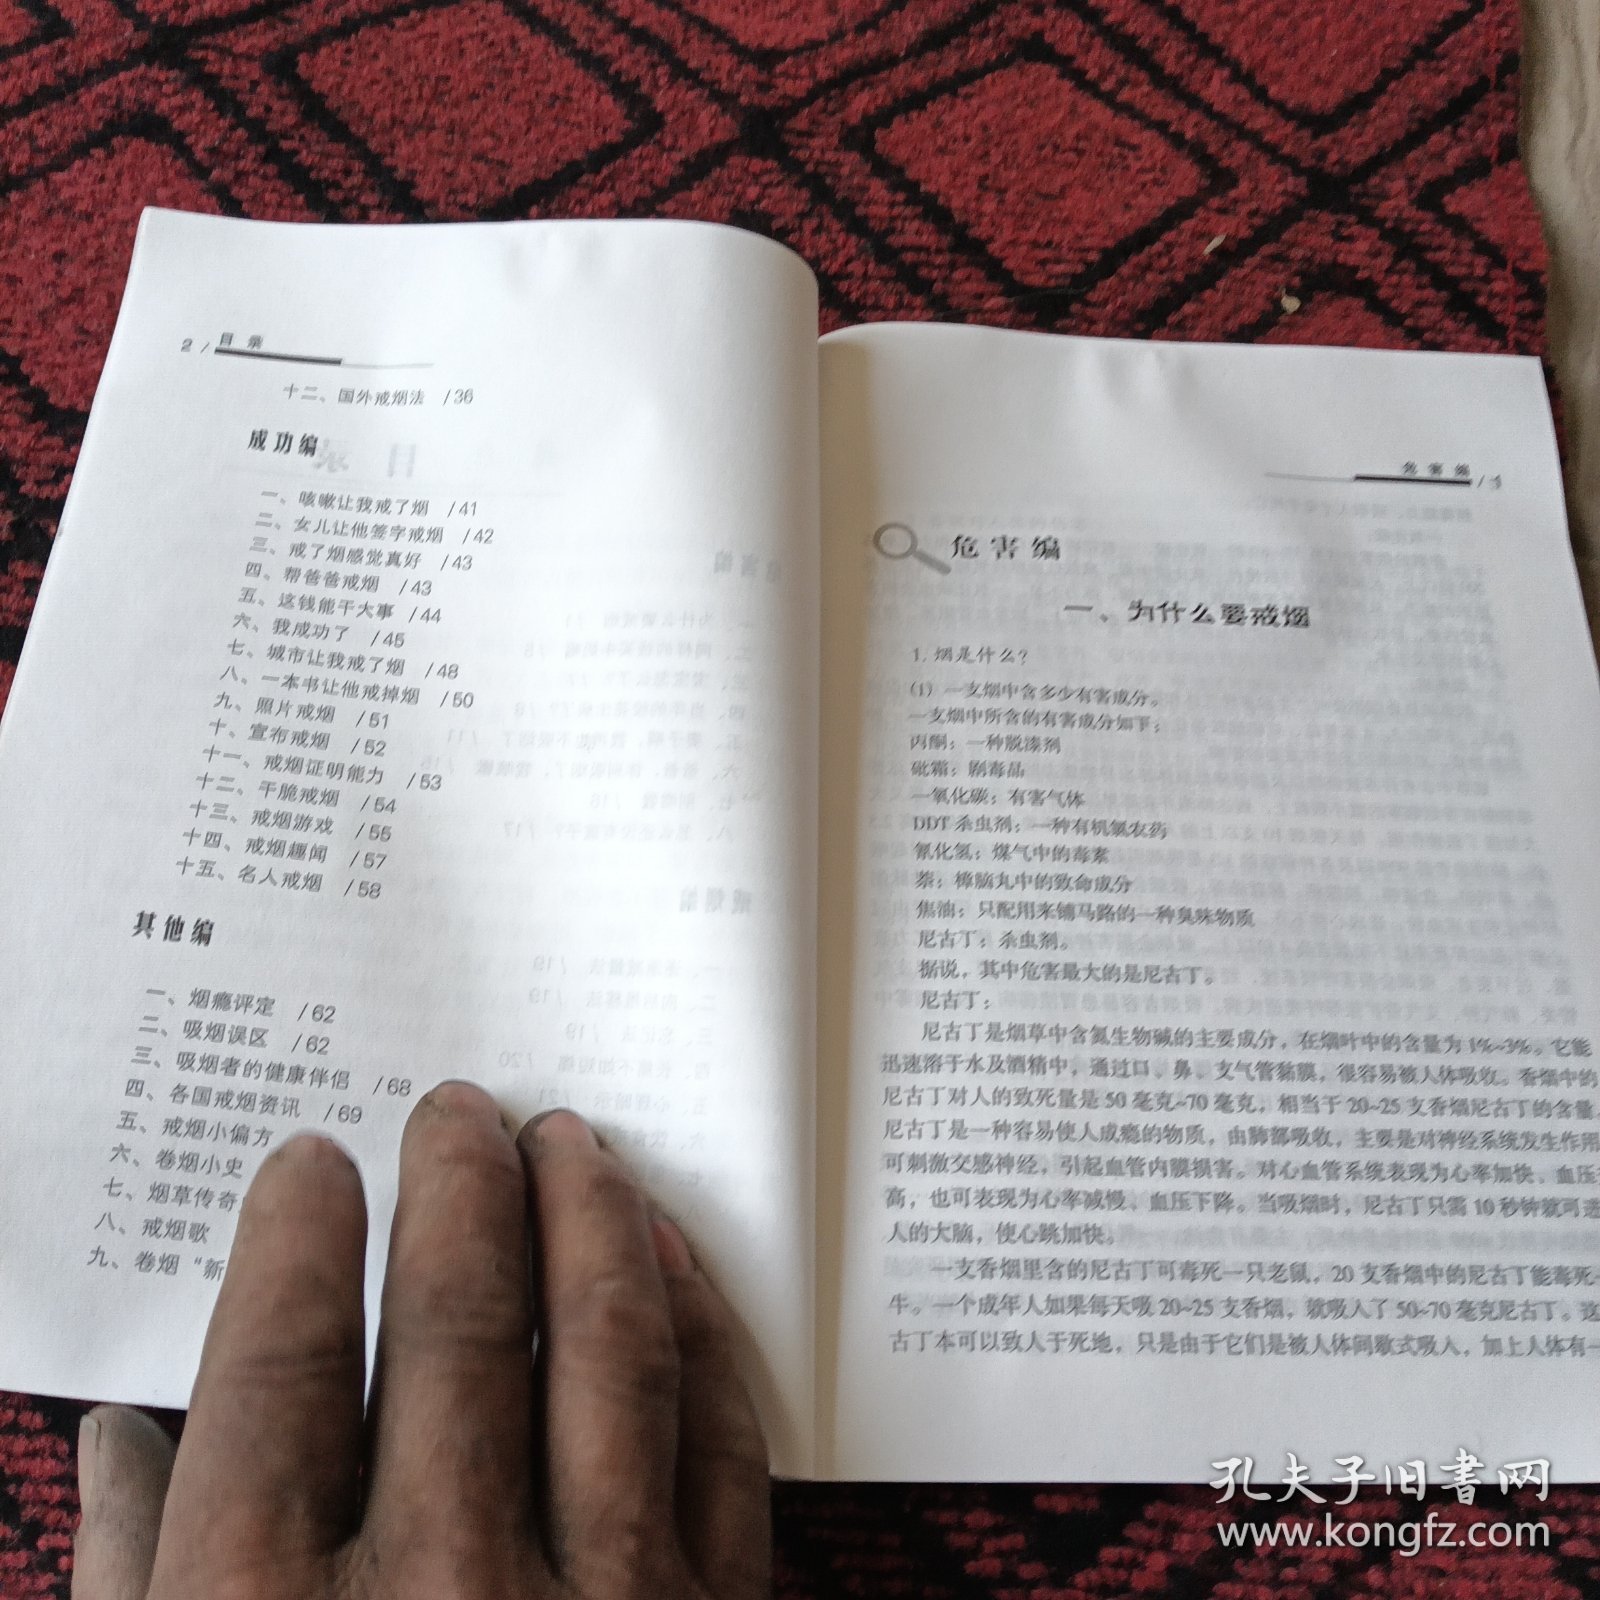 2 / 目 录
十二、国外戒烟法 /36
成功编
一、咳嗽让我戒了烟 /41
二、女儿让他签字戒烟 /42
三、戒了烟感觉真好 /43
四、帮爸爸戒烟 /43
五、这钱能干大事 /44
六、我成功了 /45
七、城市让我戒了烟 /48
八、一本书让他戒掉烟 /50
九、照片戒烟 /51
十、宣布戒烟 /52
十一、戒烟证明能力 /53
十二、干脆戒烟 /54
十三、戒烟游戏 /55
十四、戒烟趣闻 /57
十五、名人戒烟 /58
其他编
一、烟瘾评定 /62
二、吸烟误区 /62
三、吸烟者的健康伴侣 /68
四、各国戒烟资讯 /69
五、戒烟小偏方
六、卷烟小史
七、烟草传奇
八、戒烟歌
九、卷烟“新
危 害 编 /
危害编
一、为什么要戒烟
1. 烟是什么?
(1) 一支烟中含多少有害成分。
一支烟中所含的有害成分如下:
丙酮:一种脱漆剂
砒霜:剧毒品
一氧化碳:有害气体
DDT 杀虫剂:一种有机氯农药
氰化氢:煤气中的毒素
萘:樟脑丸中的致命成分
焦油:只配用来铺马路的一种臭味物质
尼古丁:杀虫剂。
据说,其中危害最大的是尼古丁。
尼古丁:
尼古丁是烟草中含氮生物碱的主要成分,在烟叶中的含量为1%~3%。它能
迅速溶于水及酒精中,通过口、鼻、支气管黏膜,很容易被人体吸收。香烟中的
尼古丁对人的致死量是50毫克~70毫克,相当于20~25支香烟尼古丁的含量。
尼古丁是一种容易使人成瘾的物质,由肺部吸收,主要是对神经系统发生作用
可刺激交感神经,引起血管内膜损害。对心血管系统表现为心率加快、血压
高,也可表现为心率减慢、血压下降。当吸烟时,尼古丁只需10秒钟就可进
人的大脑,使心跳加快。
一支香烟里含的尼古丁可毒死一只老鼠,20支香烟中的尼古丁能毒死
牛。一个成年人如果每天吸20~25支香烟,就吸入了50~70毫克尼古丁。这
古丁本可以致人于死地,只是由于它们是被人体间歇式吸入,加上人体有一
孔夫子旧书网
www.kongfz.com